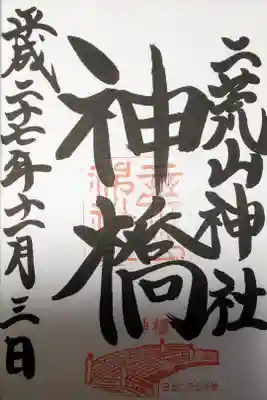 二荒山神社
神橋
平成二十七年十一月三日